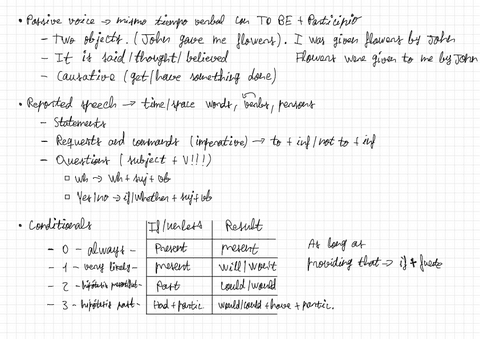 • Passive voice → mismo tiempo verbal con TO BE + Participio
– Two objects. (John gave me flowers). I was given flowers by John
Flowers were given to me by John
– It is said/thought/believed
– Causative (get/have something done)
• Reported speech → time/space words, verbs, persons
– Statements
– Requests and commands (imperative) → to + inf/not to + inf
– Questions (subject + V!!!)
▫ wh → wh + suj + vb
▫ Yes/no → if/whether + suj + vb
• Conditionals
If/unless | Result
– 0 – always – Present | present
– 1 – very likely – present | will/won't
– 2 – hipótesis – Past | could/would
– 3 – hipótesis past – Had + partic | would/could + have + partic.
As long as
providing that → if +